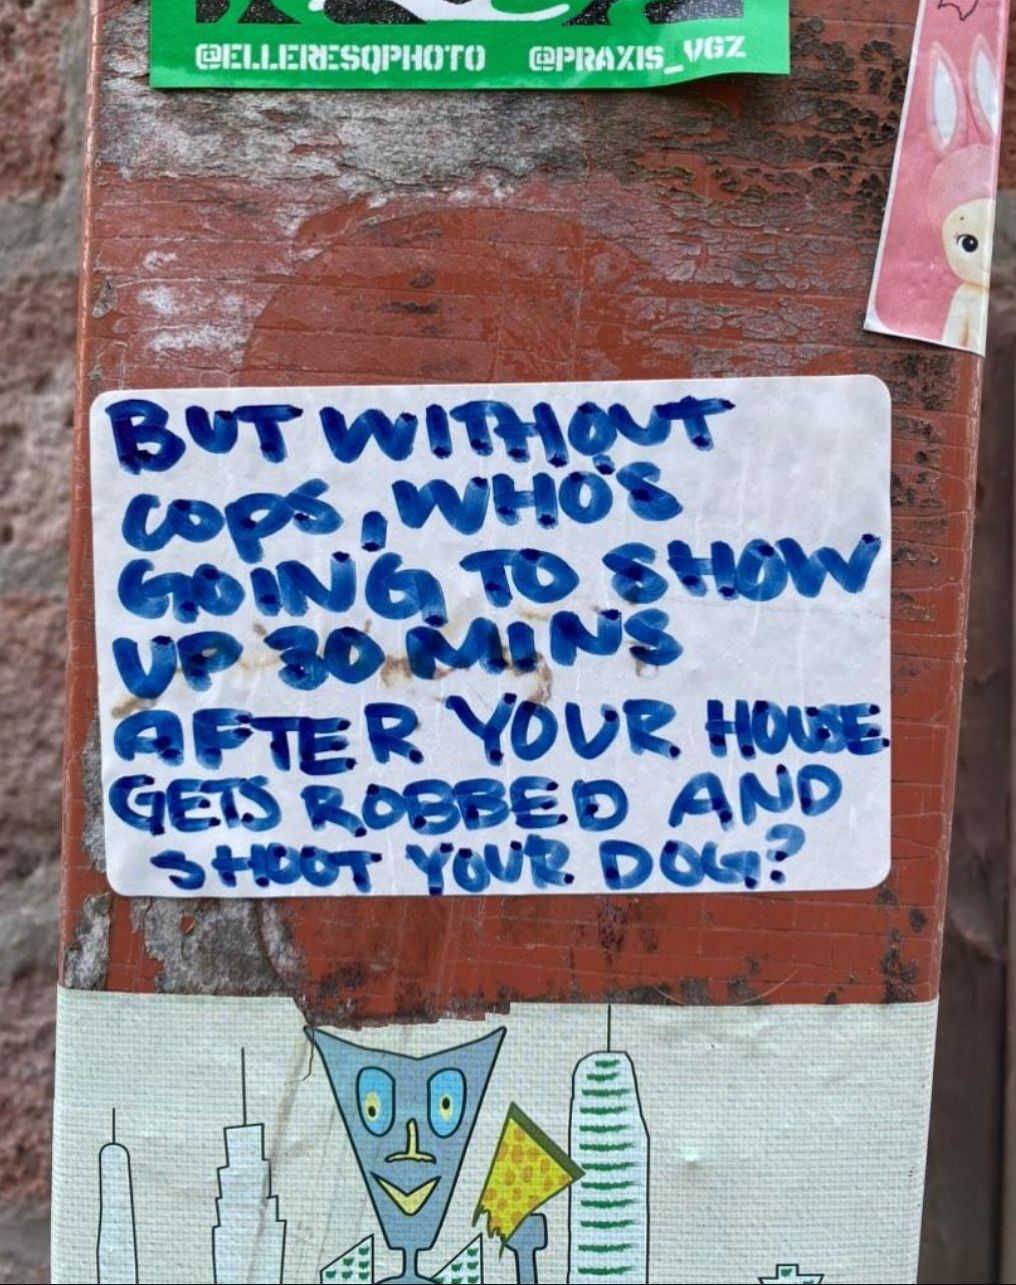 @ELLERESQPHOTO @PRAXIS_VGZ
BUT WITHOUT
COPS, WHO'S
GOING TO SHOW
UP 30 MINS
AFTER YOUR HOUSE
GETS ROBBED AND
SHOOT YOUR DOG?